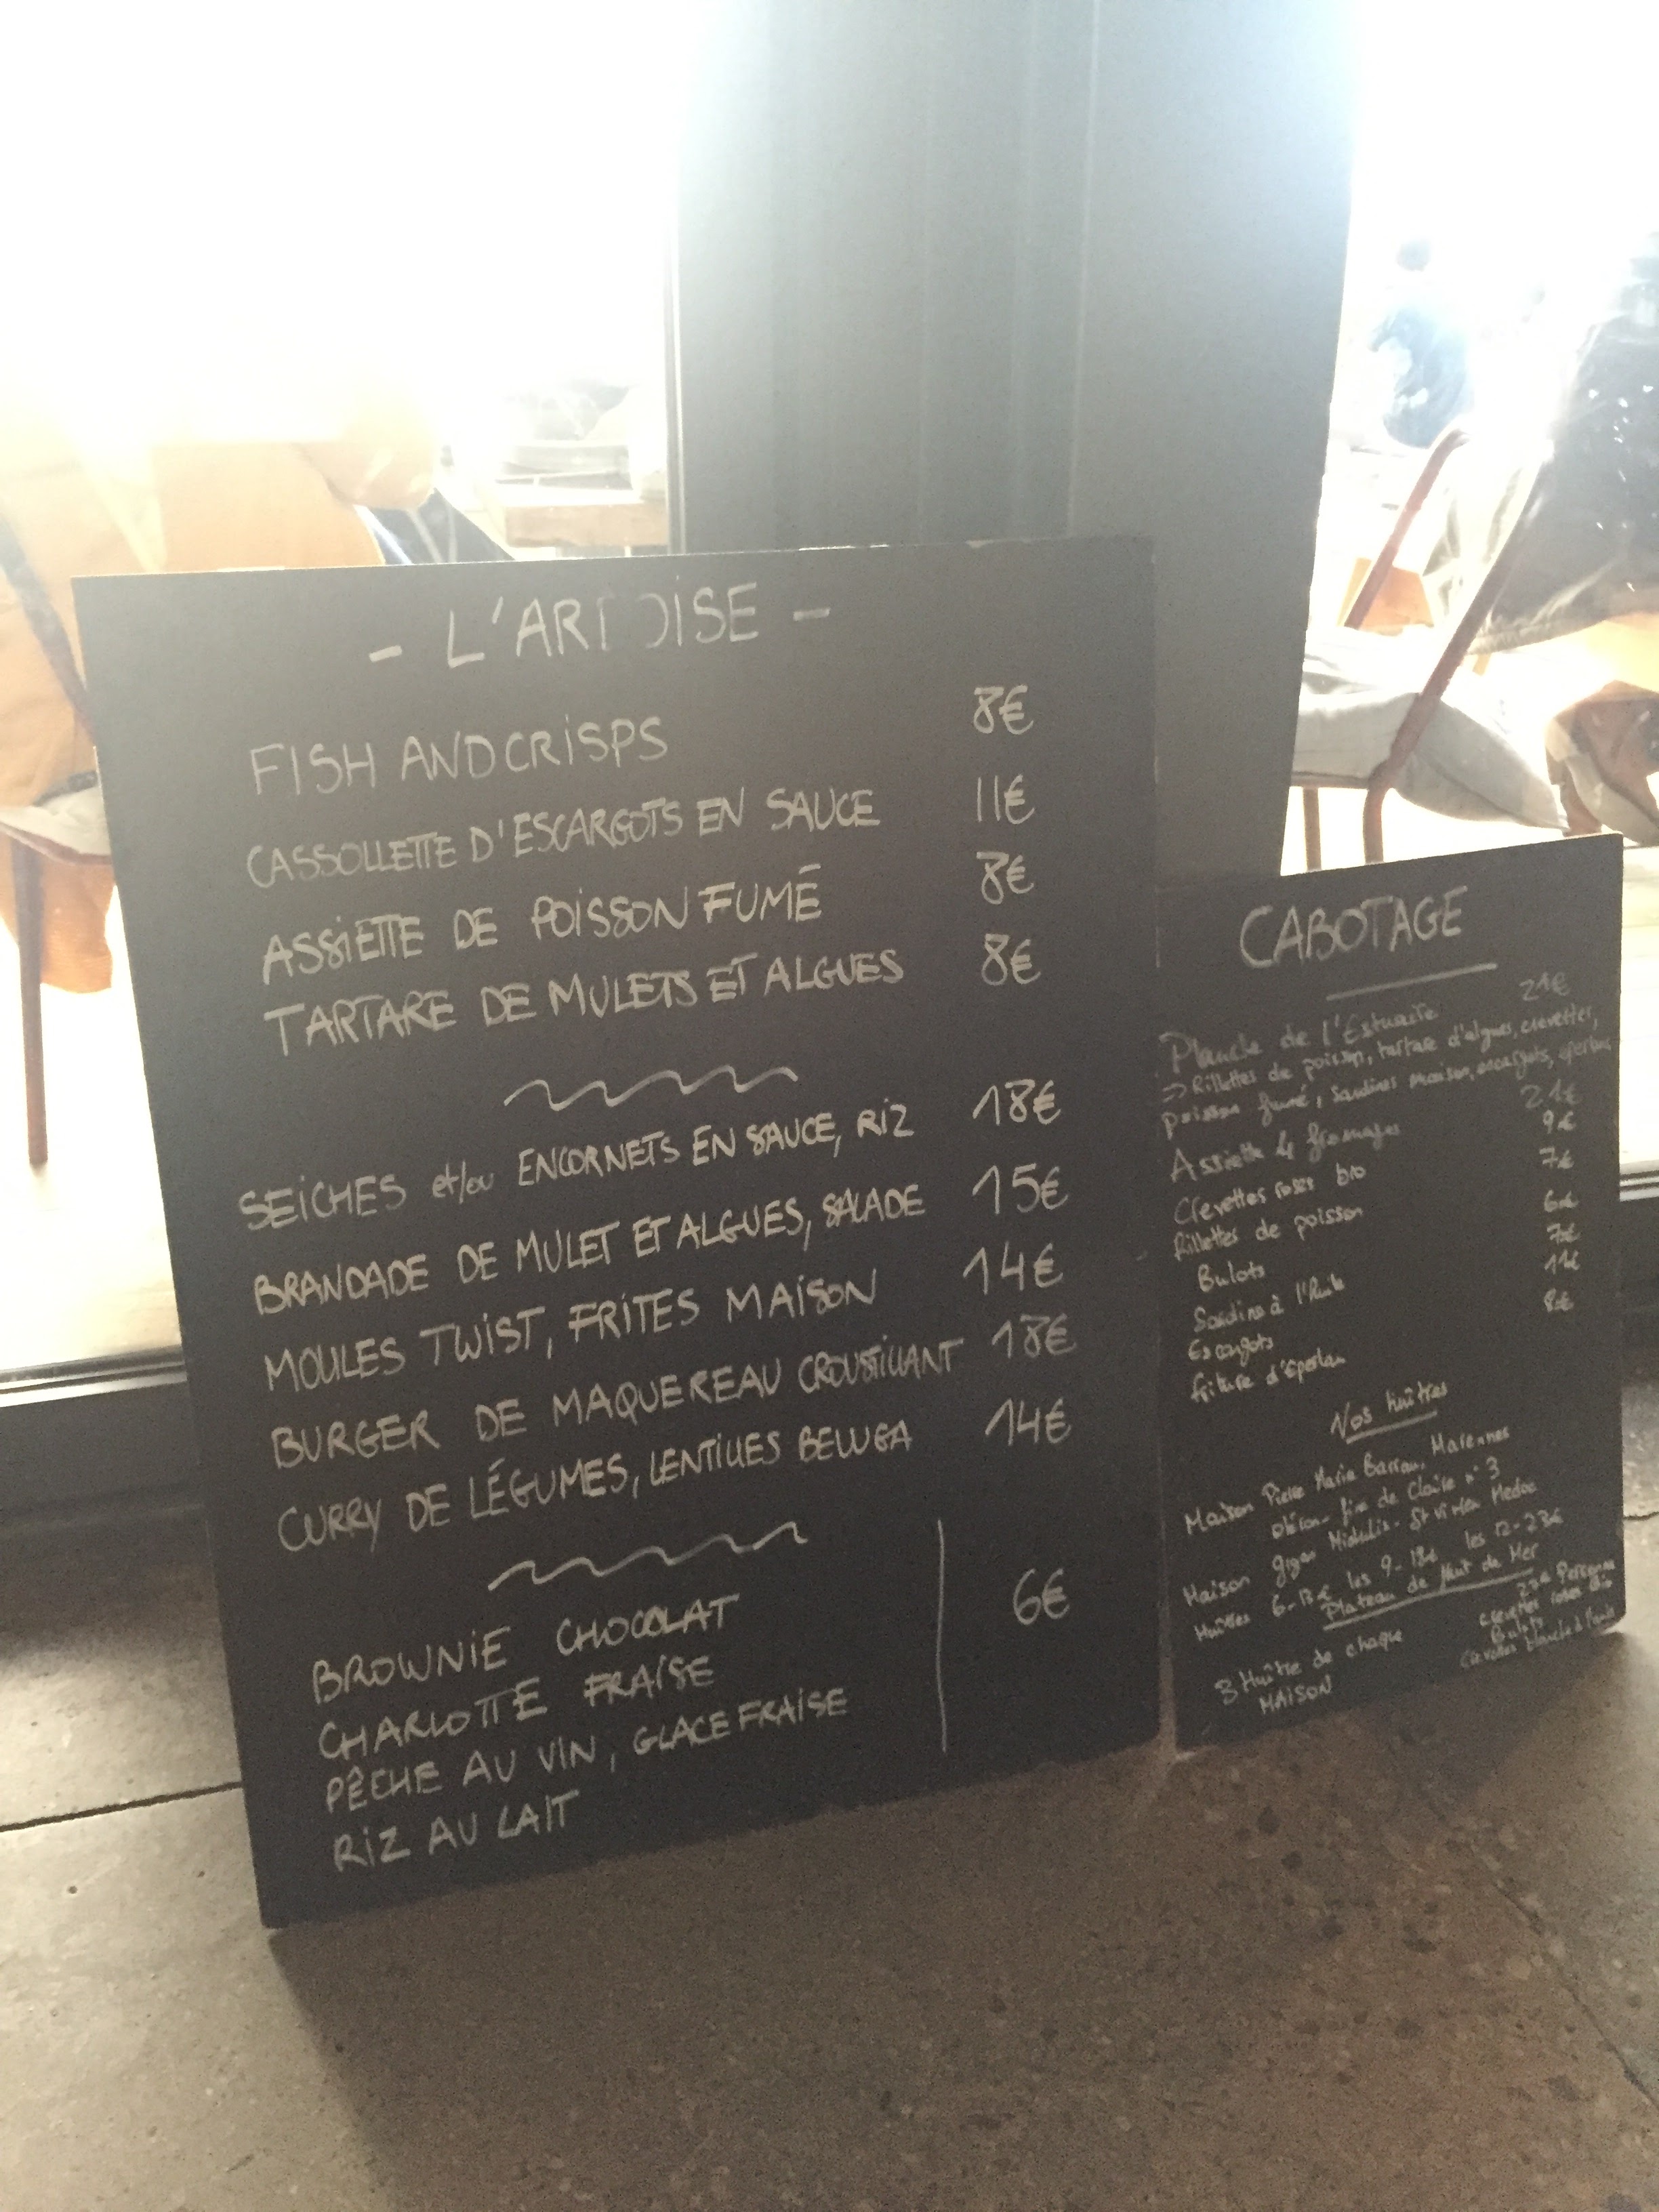 - L'ARDOISE -
FISH AND CRISPS 8€
CASSOLLETTE D'ESCARGOTS EN SAUCE 11€
ASSIETTE DE POISSON FUMÉ 8€
TARTARE DE MULETS ET ALGUES 8€
SEICHES et/ou ENCORNETS EN SAUCE, RIZ 18€
BRANDADE DE MULET ET ALGUES, SALADE 15€
MOULES TWIST, FRITES MAISON 14€
BURGER DE MAQUEREAU CROUSTILLANT 18€
CURRY DE LÉGUMES, LENTILLES BELUGA 14€
BROWNIE CHOCOLAT
CHARLOTTE FRAISE 6€
PÊCHE AU VIN, GLACE FRAISE
RIZ AU LAIT
CABOTAGE
Planche de l'Estuaire 21€
=> Rillettes de poisson, tartare d'algues, crevettes,
poisson fumé, Sardines maison, escargots, éperlans
Assiette 4 fromages
Crevettes roses bio 9€
Rillettes de poisson 7€
Bulots 6€
Sardine à l'huile 7€
Escargots 11€
friture d'éperlan 8€
Nos huîtres
Maison Pierre Marie Barrau, Marennes
Oléron - fine de Claire n°3
Maison - St Medoc
Huîtres 6-13€ les 9-18€ les 12-23€
Plateau de Haut de Mer
3 Huître de chaque
MAISON
Personne
Crevettes roses Bio
Bulots